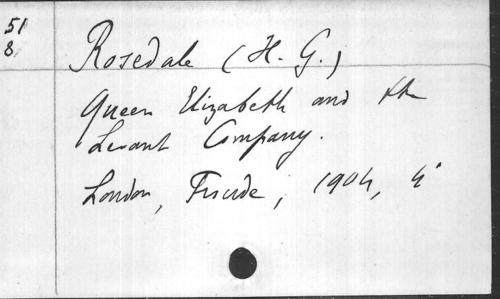 51
8.
Rosedale (H. G.)
Queen Elizabeth and the
Levant Company.
London, Frowde, 1904, 4°